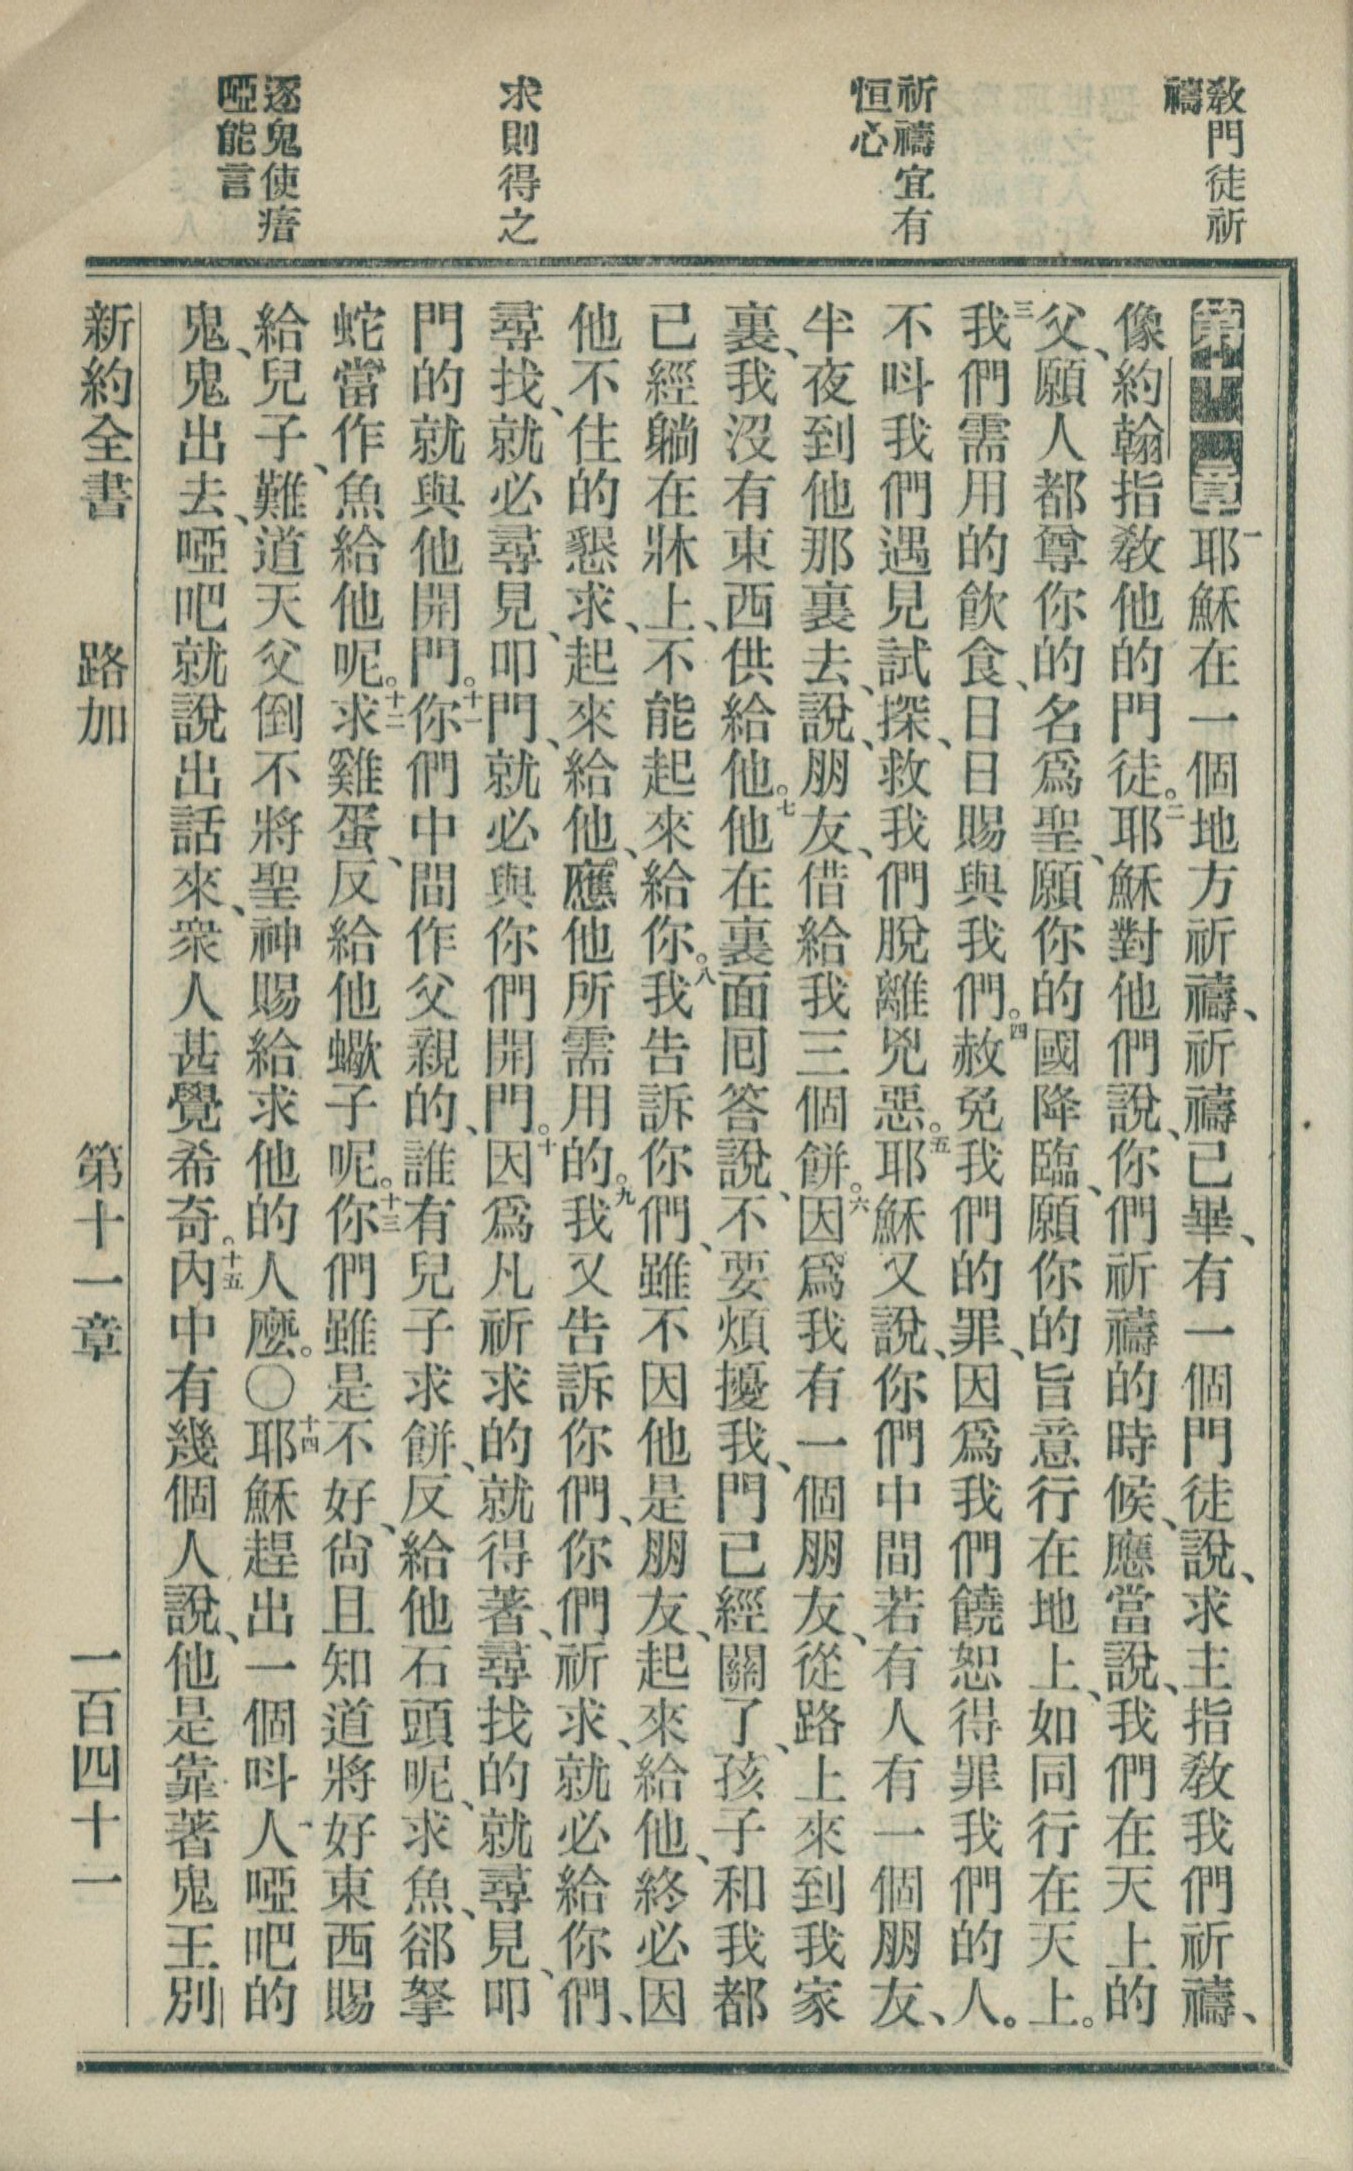 教門徒祈
禱
祈禱宜有
恒心
求則得之
逐鬼使瘖
啞能言
第十一章 一耶穌在一個地方祈禱、祈禱已畢、有一個門徒說、求主指教我們祈禱、
像約翰指教他的門徒。二耶穌對他們說、你們祈禱的時候、應當說、我們在天上的
父、願人都尊你的名爲聖、願你的國降臨、願你的旨意行在地上、如同行在天上。
三我們需用的飲食、日日賜與我們。四赦免我們的罪、因爲我們饒恕得罪我們的人。
不呌我們遇見試探、救我們脫離兇惡。五耶穌又說、你們中間若有人有一個朋友、
半夜到他那裏去、說、朋友、借給我三個餅。六因爲我有一個朋友、從路上來到我家
裏、我沒有東西供給他。七他在裏面囘答說、不要煩擾我、門已經關了、孩子和我都
已經躺在牀上、不能起來給你。八我告訴你們、雖不因他是朋友、起來給他、終必因
他不住的懇求、起來給他、應他所需用的。九我又告訴你們、你們祈求、就必給你們、
尋找、就必尋見、叩門、就必與你們開門。十因爲凡祈求的就得著、尋找的就尋見、叩
門的就與他開門。十一你們中間作父親的、誰有兒子求餅、反給他石頭呢、求魚、郤拏
蛇當作魚給他呢。十二求雞蛋、反給他蠍子呢。十三你們雖是不好、尙且知道將好東西賜
給兒子、難道天父倒不將聖神賜給求他的人麼。〇十四耶穌趕出一個呌人啞吧的
鬼、鬼出去、啞吧就說出話來、衆人甚覺希奇。十五內中有幾個人說、他是靠著鬼王別
新約全書　路加　第十一章　一百四十一